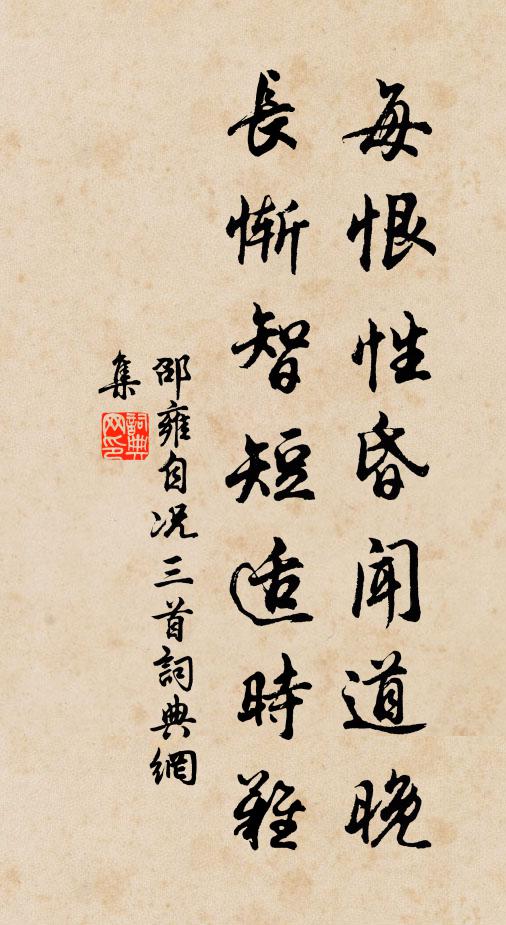 每恨性昏闻道晚
長惭智短适時難
邵雍自况三首詞典網
集
詞典网印